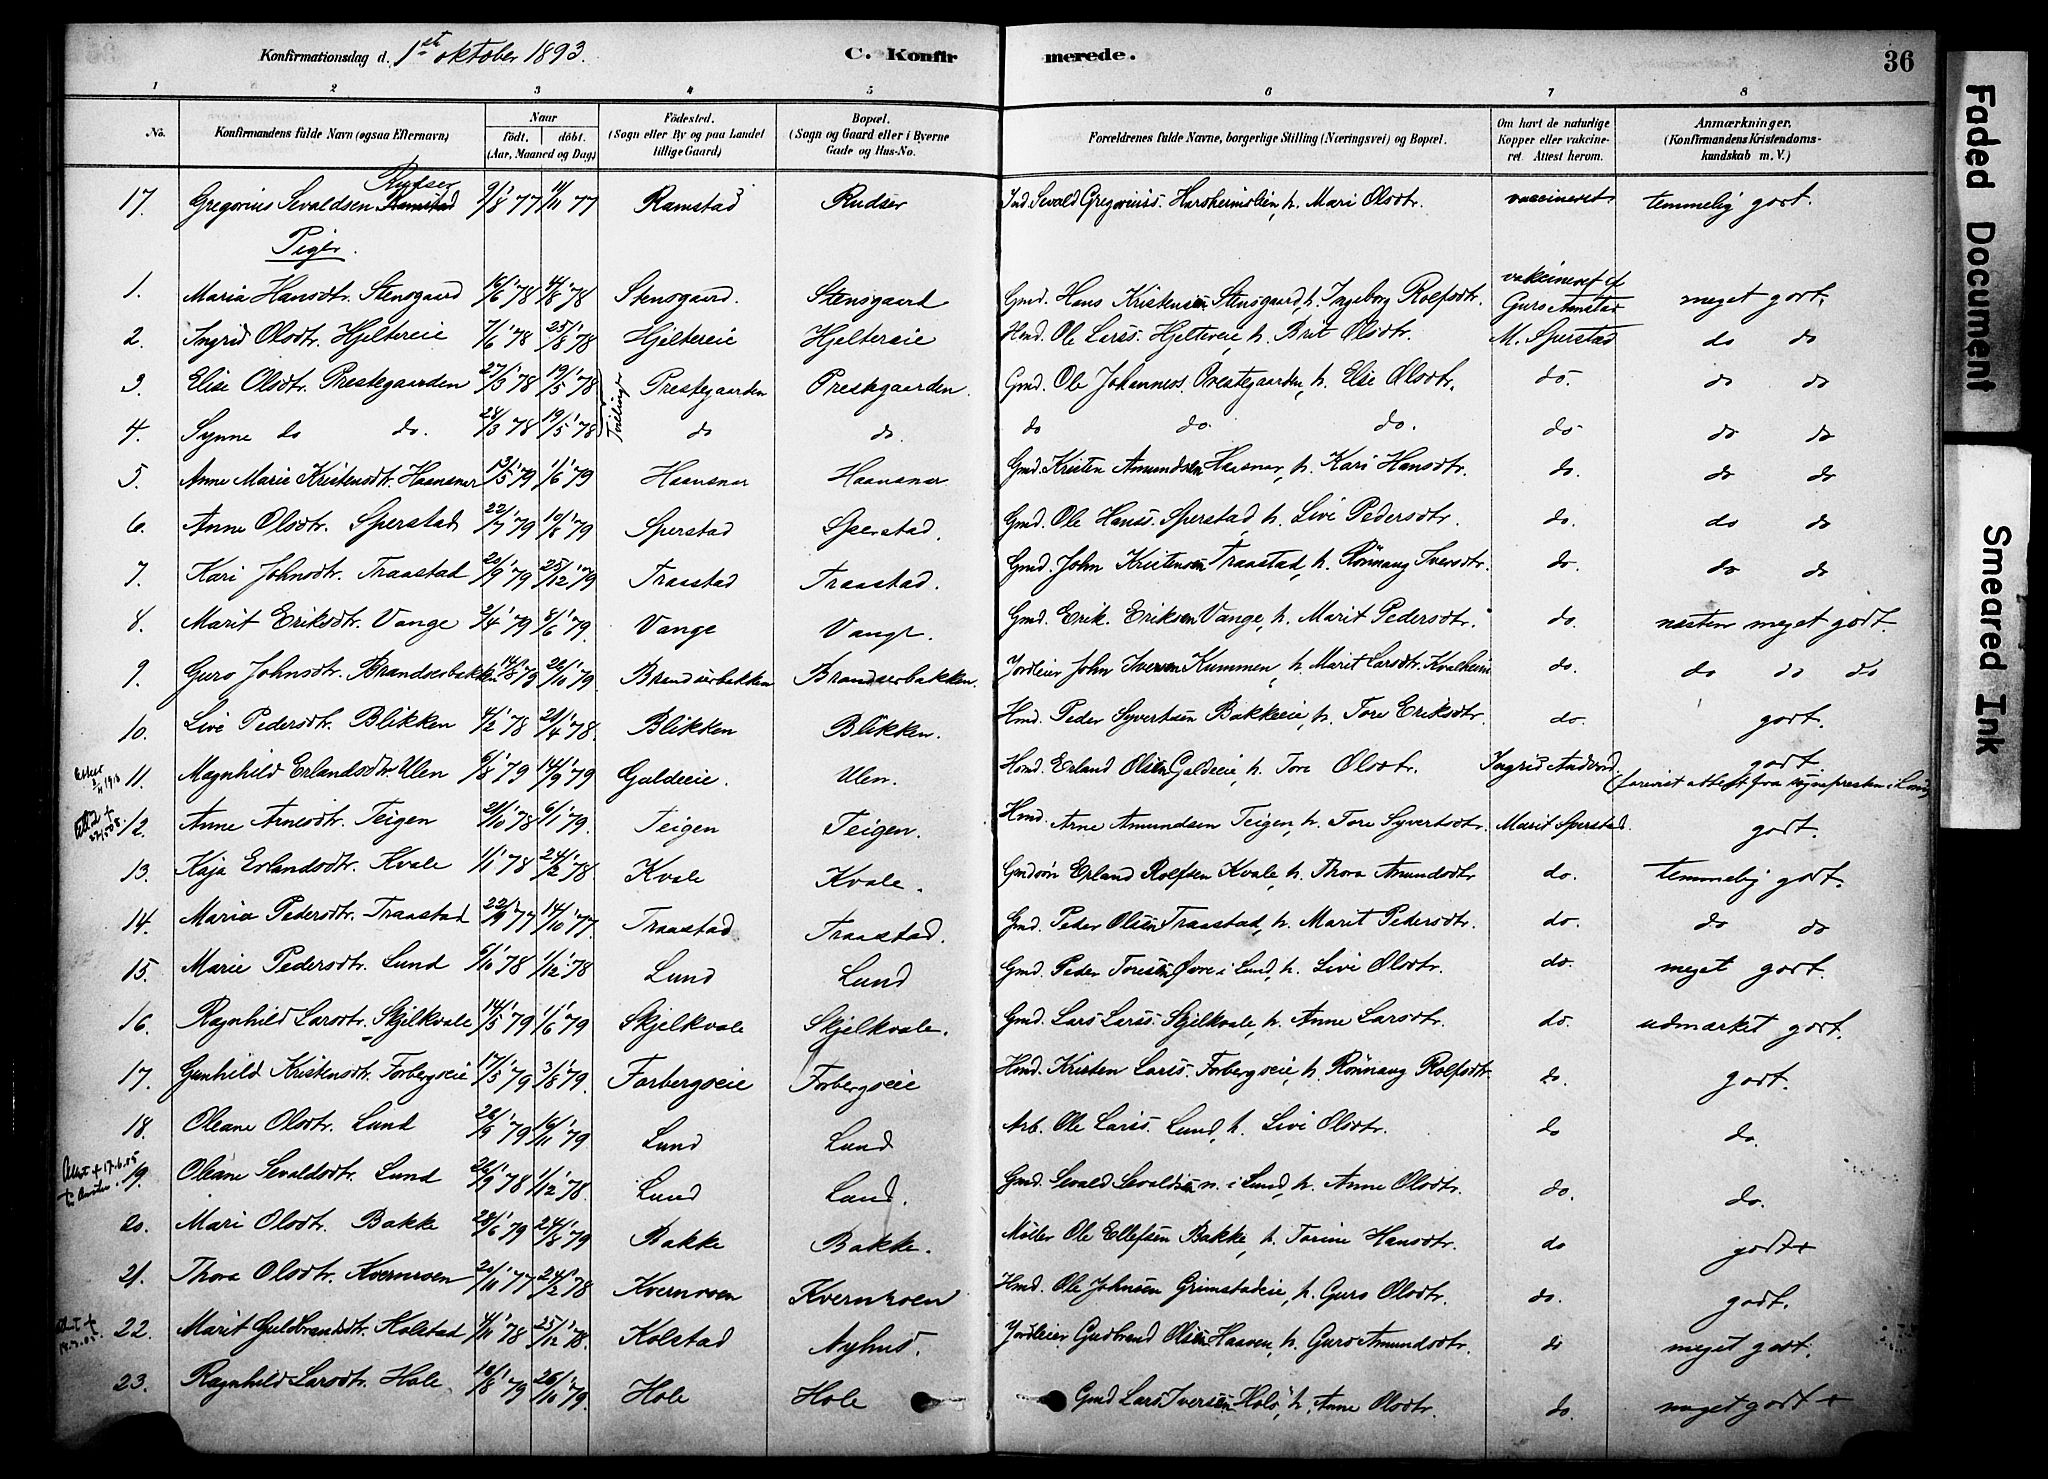 Konfirmationsdag d. 1ste oktober 1893. C. Konfirmerede. 36
1 2 3 4 5 6 7 8
No. Konfirmandens fulde Navn (ogsaa Efternavn) Naar født. døbt. (Aar, Maaned og Dag) Fødested. (Sogn eller By og paa Landet tillige Gaard) Bopæl. (Sogn og Gaard eller i Byerne Gade og Hus-No. Forældrenes fulde Navne, borgerlige Stilling (Næringsvei) og Bopæl. Om havt de naturlige Kopper eller vakcineret. Attest herom. Anmærkninger. (Konfirmandens Kristendomskundskab m. V.)
17. Gregorius Sevaldsen Ramstad Rudser 9/8 77 11/11 77 Ramstad Rudser Ind. Sevald Gregoriuss. Harsheimslien, h. Mari Olsdtr. vaccineret temmelig godt.
Piger.
1. Maria Hansdtr. Stensgaard 16/6 '78 14/8 '78 Stensgaard. Stensgaard Gmd. Hans Kristensen Stensgaard, h. Ingeborg Rolfsdtr. vakcineret af Guro Aanstad meget godt.
2. Ingrid Olsdtr. Hjeltereie 7/6 '78 25/8 '78 Hjeltereie Hjeltereie Hmd. Ole Larss. Hjeltereie h. Brit Olsdtr. M. Sperstad do do
3. Elise Olsdtr. Prestegaarden 27/3 '78 19/5 '78 Tvilling Prestegaarden Prestegaarden. Gmd. Ole Johanness. Prestegaarden, h. Else Olsdtr. do. do do
4. Synne do do. 28/3 '78 19/5 '78 do do. do do. do. do do do
5. Anne Marie Kristensdtr. Haansnar 13/5 '79 1/6 '79 Haansnar Haansnar Gmd. Kristen Amundsen Haansnar, h. Kari Hansdtr. do. do do
6. Anne Olsdtr. Sperstad 22/7 '79 10/8 '79 Sperstad Sperstad. Gmd. Ole Hanss. Sperstad, h. Live Pedersdtr. do. do do
7. Kari Johnsdtr. Traastad 20/9 '79 25/12 '79 Traastad Traastad. Gmd. John Kristensen Traastad, h. Rönnaug Iversdtr. do. do do
8. Marit Eriksdtr. Vange 2/4 '79 8/6 '79 Vange Vange. Gmd. Erik Eriksen Vange, h. Marit Pedersdtr. do. næsten meget godt.
9. Guro Johnsdtr. Brandserbakken 14/8 '79 26/10 '79 Brandserbakken Brandserbakken. Jordleier John Iversen Kummen, h. Marit Larsdtr. Kvalheim do. do do do
10. Live Pedersdtr. Blikken 4/2 '78 21/4 '78. Blikken Blikken. Hmd. Peder Syvertsen Bakkeeie, h. Tore Eriksdtr. do. godt.
11. Magnhild Erlandsdtr. Ulen 6/8 '79 14/9 '79 Galdeeie. Ulen. Hmd. Erland Olsen Galdeeie, h. Tore Olsdtr. Ingrid Andvord godt (forevist attest fra sognepresten i Lom)
12. Anne Arnesdtr. Teigen 21/10 '78 6/1 '79. Teigen Teigen. Hmd. Arne Amundsen Teigen, h. Tore Syvertsdtr. Marit Sperstad. godt.
13. Kaja Erlandsdtr. Kvale 1/1 '78 24/2 '78. Kvale Kvale. Gmdsön Erland Rolfsen Kvale, h. Thora Amundsdtr do. temmelig godt.
14. Maria Pedersdtr. Traastad 22/9 '77 14/10 '77. Traastad Traastad. Gmd. Peder Olsen Traastad, h. Marit Pedersdtr. do. do do
15. Marie Pedersdtr. Lund 6/10 '78 1/12 '78 Lund Lund Gmd. Peder Toresen Øvre i Lund, h. Live Olsdtr. do. meget godt.
16. Ragnhild Larsdtr. Skjelkvale 14/5 '79 1/6 '79 Skjelkvale Skjelkvale. Gmd. Lars Larss. Skjelkvale, h. Anne Larsdtr. do. udmærket godt.
17. Gunhild Kristensdtr. Forbergseie 17/5 '79 3/8 '79. Forbergseie Forbergseie Hmd. Kristen Larss. Forbergseie, h. Rönnaug Rolfsdtr. do. godt.
18. Oleane Olsdtr. Lund 26/9 '79 16/11 '79 Lund Lund Arb. Ole Larss. Lund, h. Live Olsdtr. do do.
19. Oleane Sevaldsdtr. Lund 26/9 '78 1/12 '78. Lund Lund. Gmd. Sevald Sevaldsen n. i Lund, h. Anne Olsdtr. do. do.
20. Mari Olsdtr. Bakke 28/6 '79 24/8 '79 Bakke Bakke. Møller Ole Ellefsen Bakke, h. Torine Hansdtr. do godt+
21. Thora Olsdtr. Kvernroen 20/11 '77 24/2 '78 Kvernroen Kvernroen Hmd. Ole Johnsen Grimstadeie, h. Guro Olsdtr. do. godt.
22. Marit Guldbrandsdtr. Kolstad 4/11 '78 25/12 '78. Kolstad Nyhus. Jordleier Gudbrand Olsen Haaven, h. Guro Amundsdtr. do meget godt.
23. Ragnhild Larsdtr. Hole 10/8 '79 26/10 '79. Hole Hole Gmd Lars Iversen Hole, h. Anne Olsdtr. do. meget godt +
Faded Document
Smeared Ink